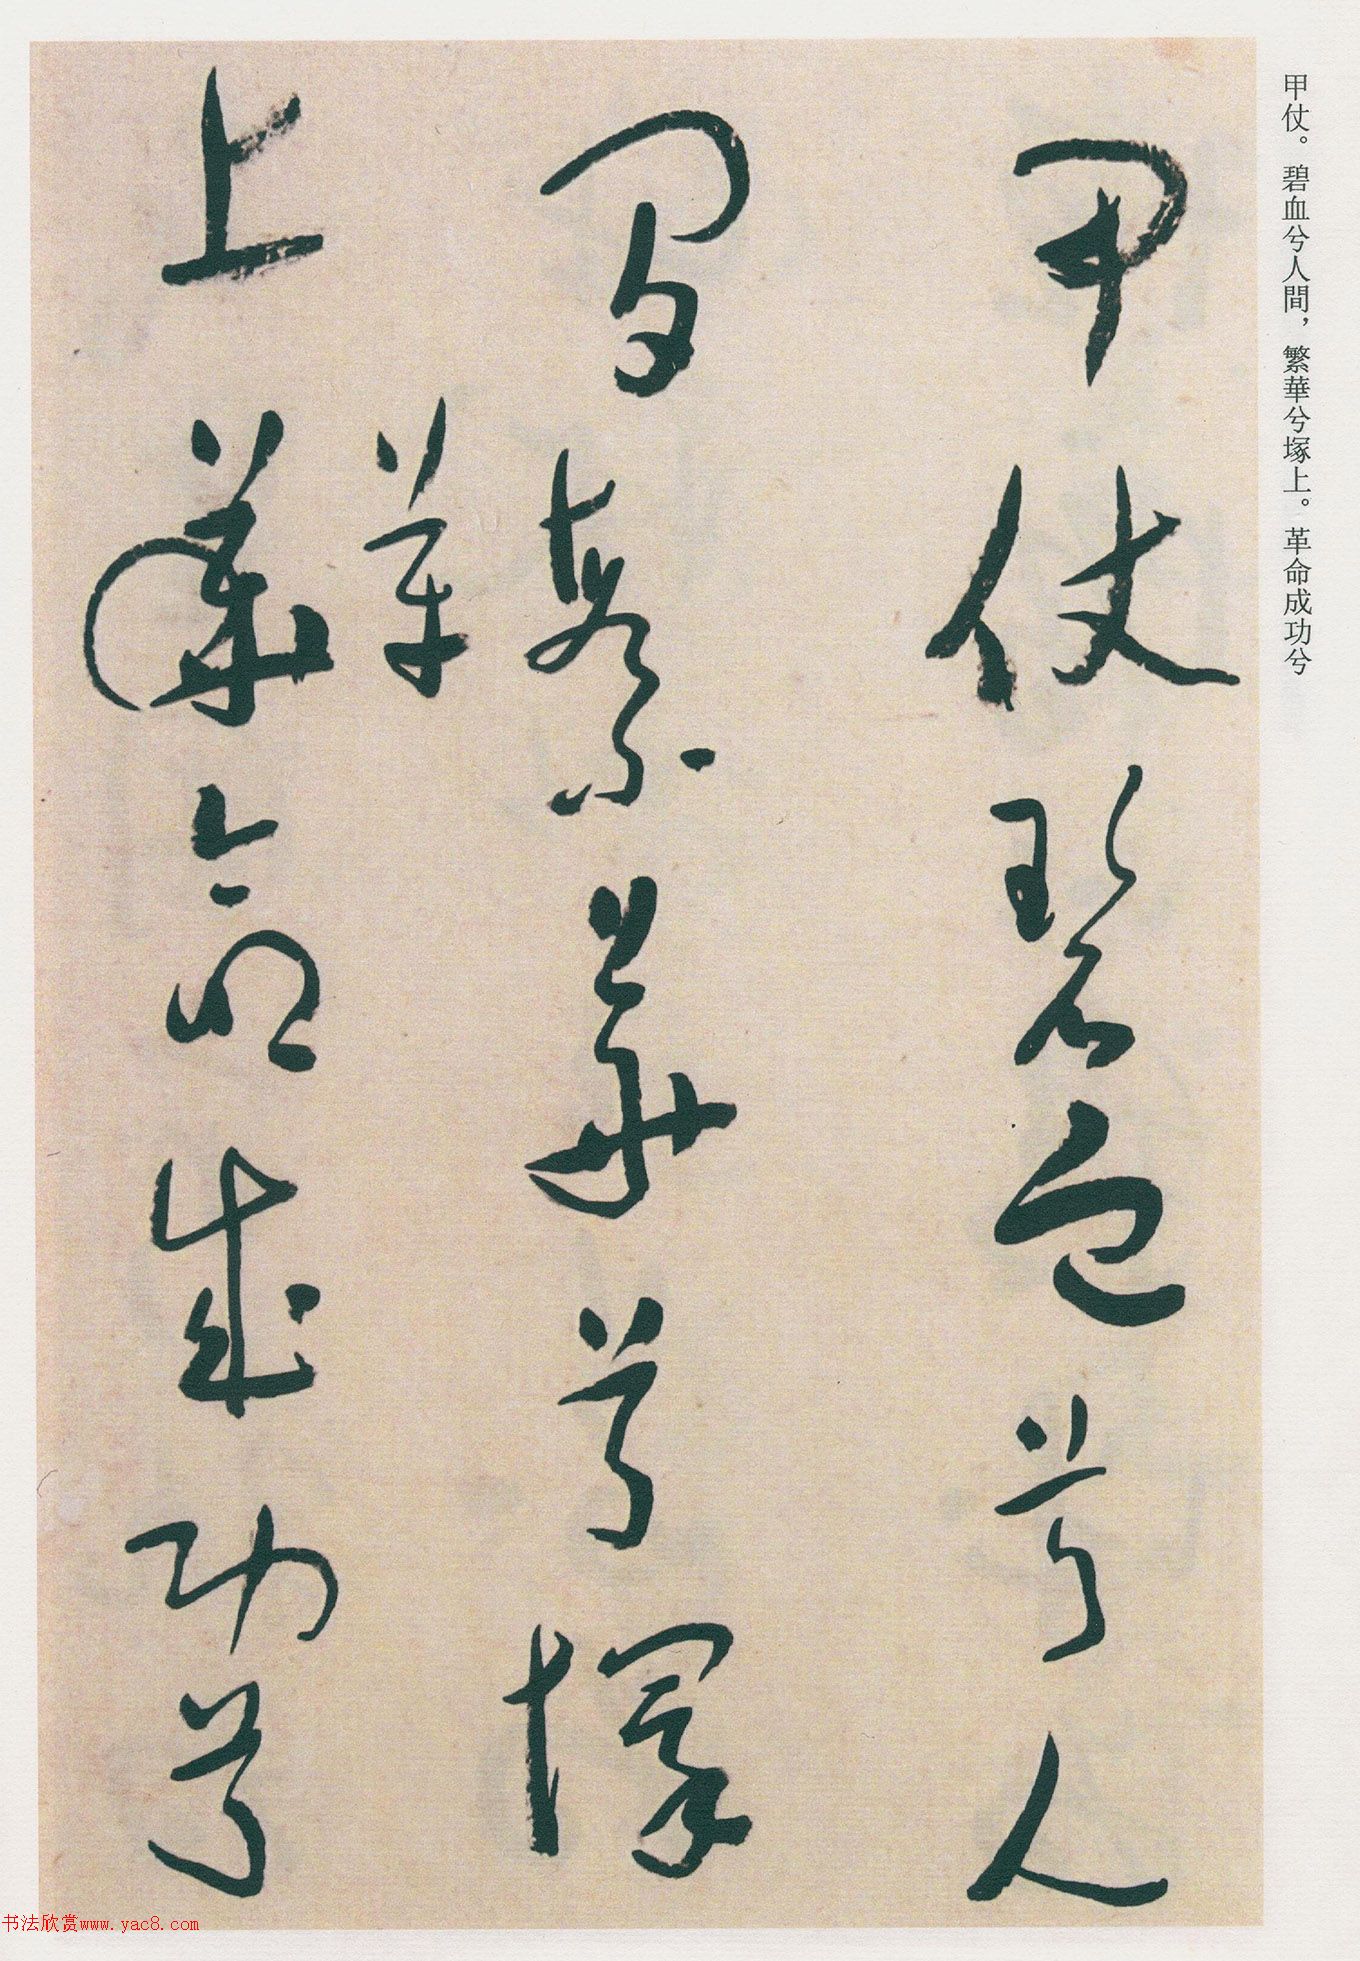 甲仗碧血兮人
間繁華兮塚
上革命成功兮
甲仗。碧血兮人間，繁華兮塚上。革命成功兮
书法欣赏www.yac8.com